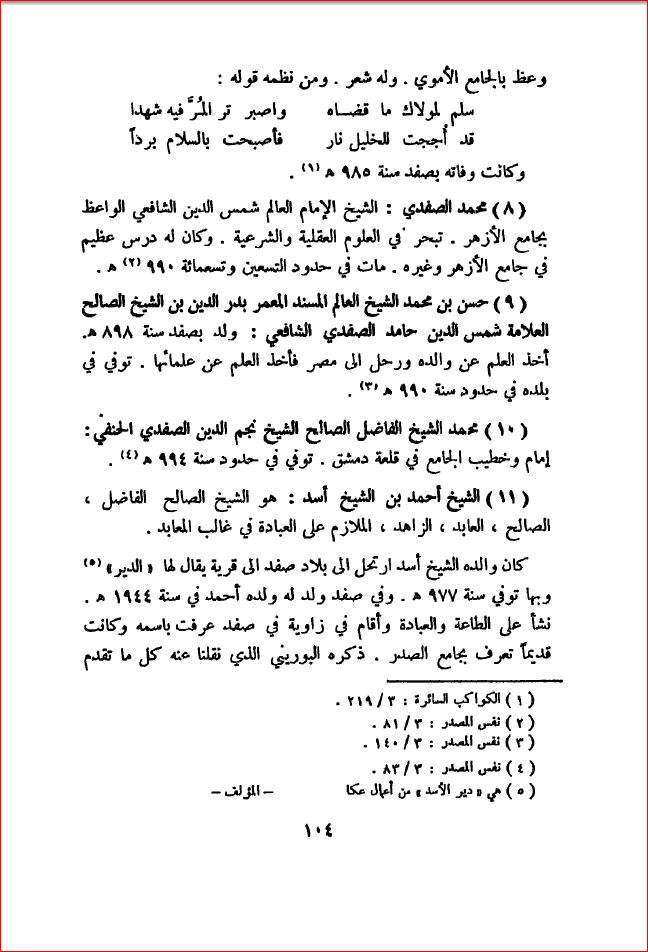 وعظ بالجامع الأموي . وله شعر . ومن نظمه قوله :
سلم لمولاك ما قضــاه واصبر تر المُرَّ فيه شهدا
قد أُججت للخليل نار فأصبحت بالسلام برداً
وكانت وفاته بصفد سنة ٩٨٥ ه (١) .
(٨) محمد الصفدي : الشيخ الإمام العالم شمس الدين الشافعي الواعظ
بجامع الأزهر . تبحر في العلوم العقلية والشرعية . وكان له درس عظيم
في جامع الأزهر وغيره . مات في حدود التسعين وتسعمائة ٩٩٠ (٢) ه .
(٩) حسن بن محمد الشيخ العالم المسند المعمر بدر الدين بن الشيخ الصالح
العلامة شمس الدين حامد الصفدي الشافعي : ولد بصفد سنة ٨٩٨ ه.
أخذ العلم عن والده ورحل الى مصر فأخذ العلم عن علمائها . توفي في
بلده في حدود سنة ٩٩٠ ه (٣) .
(١٠) محمد الشيخ الفاضل الصالح الشيخ نجم الدين الصفدي الحنفي :
إمام وخطيب الجامع في قلعة دمشق . توفي في حدود سنة ٩٩٤ ه (٤) .
(١١) الشيخ أحمد بن الشيخ أسد : هو الشيخ الصالح الفاضل ،
الصالح ، العابد ، الزاهد ، الملازم على العبادة في غالب المعابد .
كان والده الشيخ أسد ارتحل الى بلاد صفد الى قرية يقال لها « الدير» (٥)
وبها توفي سنة ٩٧٧ ه . وفي صفد ولد له ولده أحمد في سنة ١٩٤٤ ه .
نشأ على الطاعة والعبادة وأقام في زاوية في صفد عرفت باسمه وكانت
قديماً تعرف بجامع الصدر . ذكره البوريني الذي نقلنا عنه كل ما تقدم
(١) الكواكب السائرة : ٣ / ٢١٩ .
(٢) نفس المصدر : ٣ / ٨١ .
(٣) نفس المصدر : ٣ / ١٤٠ .
(٤) نفس المصدر : ٣ / ٨٣ .
(٥) هي « دير الأسد» من أعمال عكا – المؤلف –
١٠٤